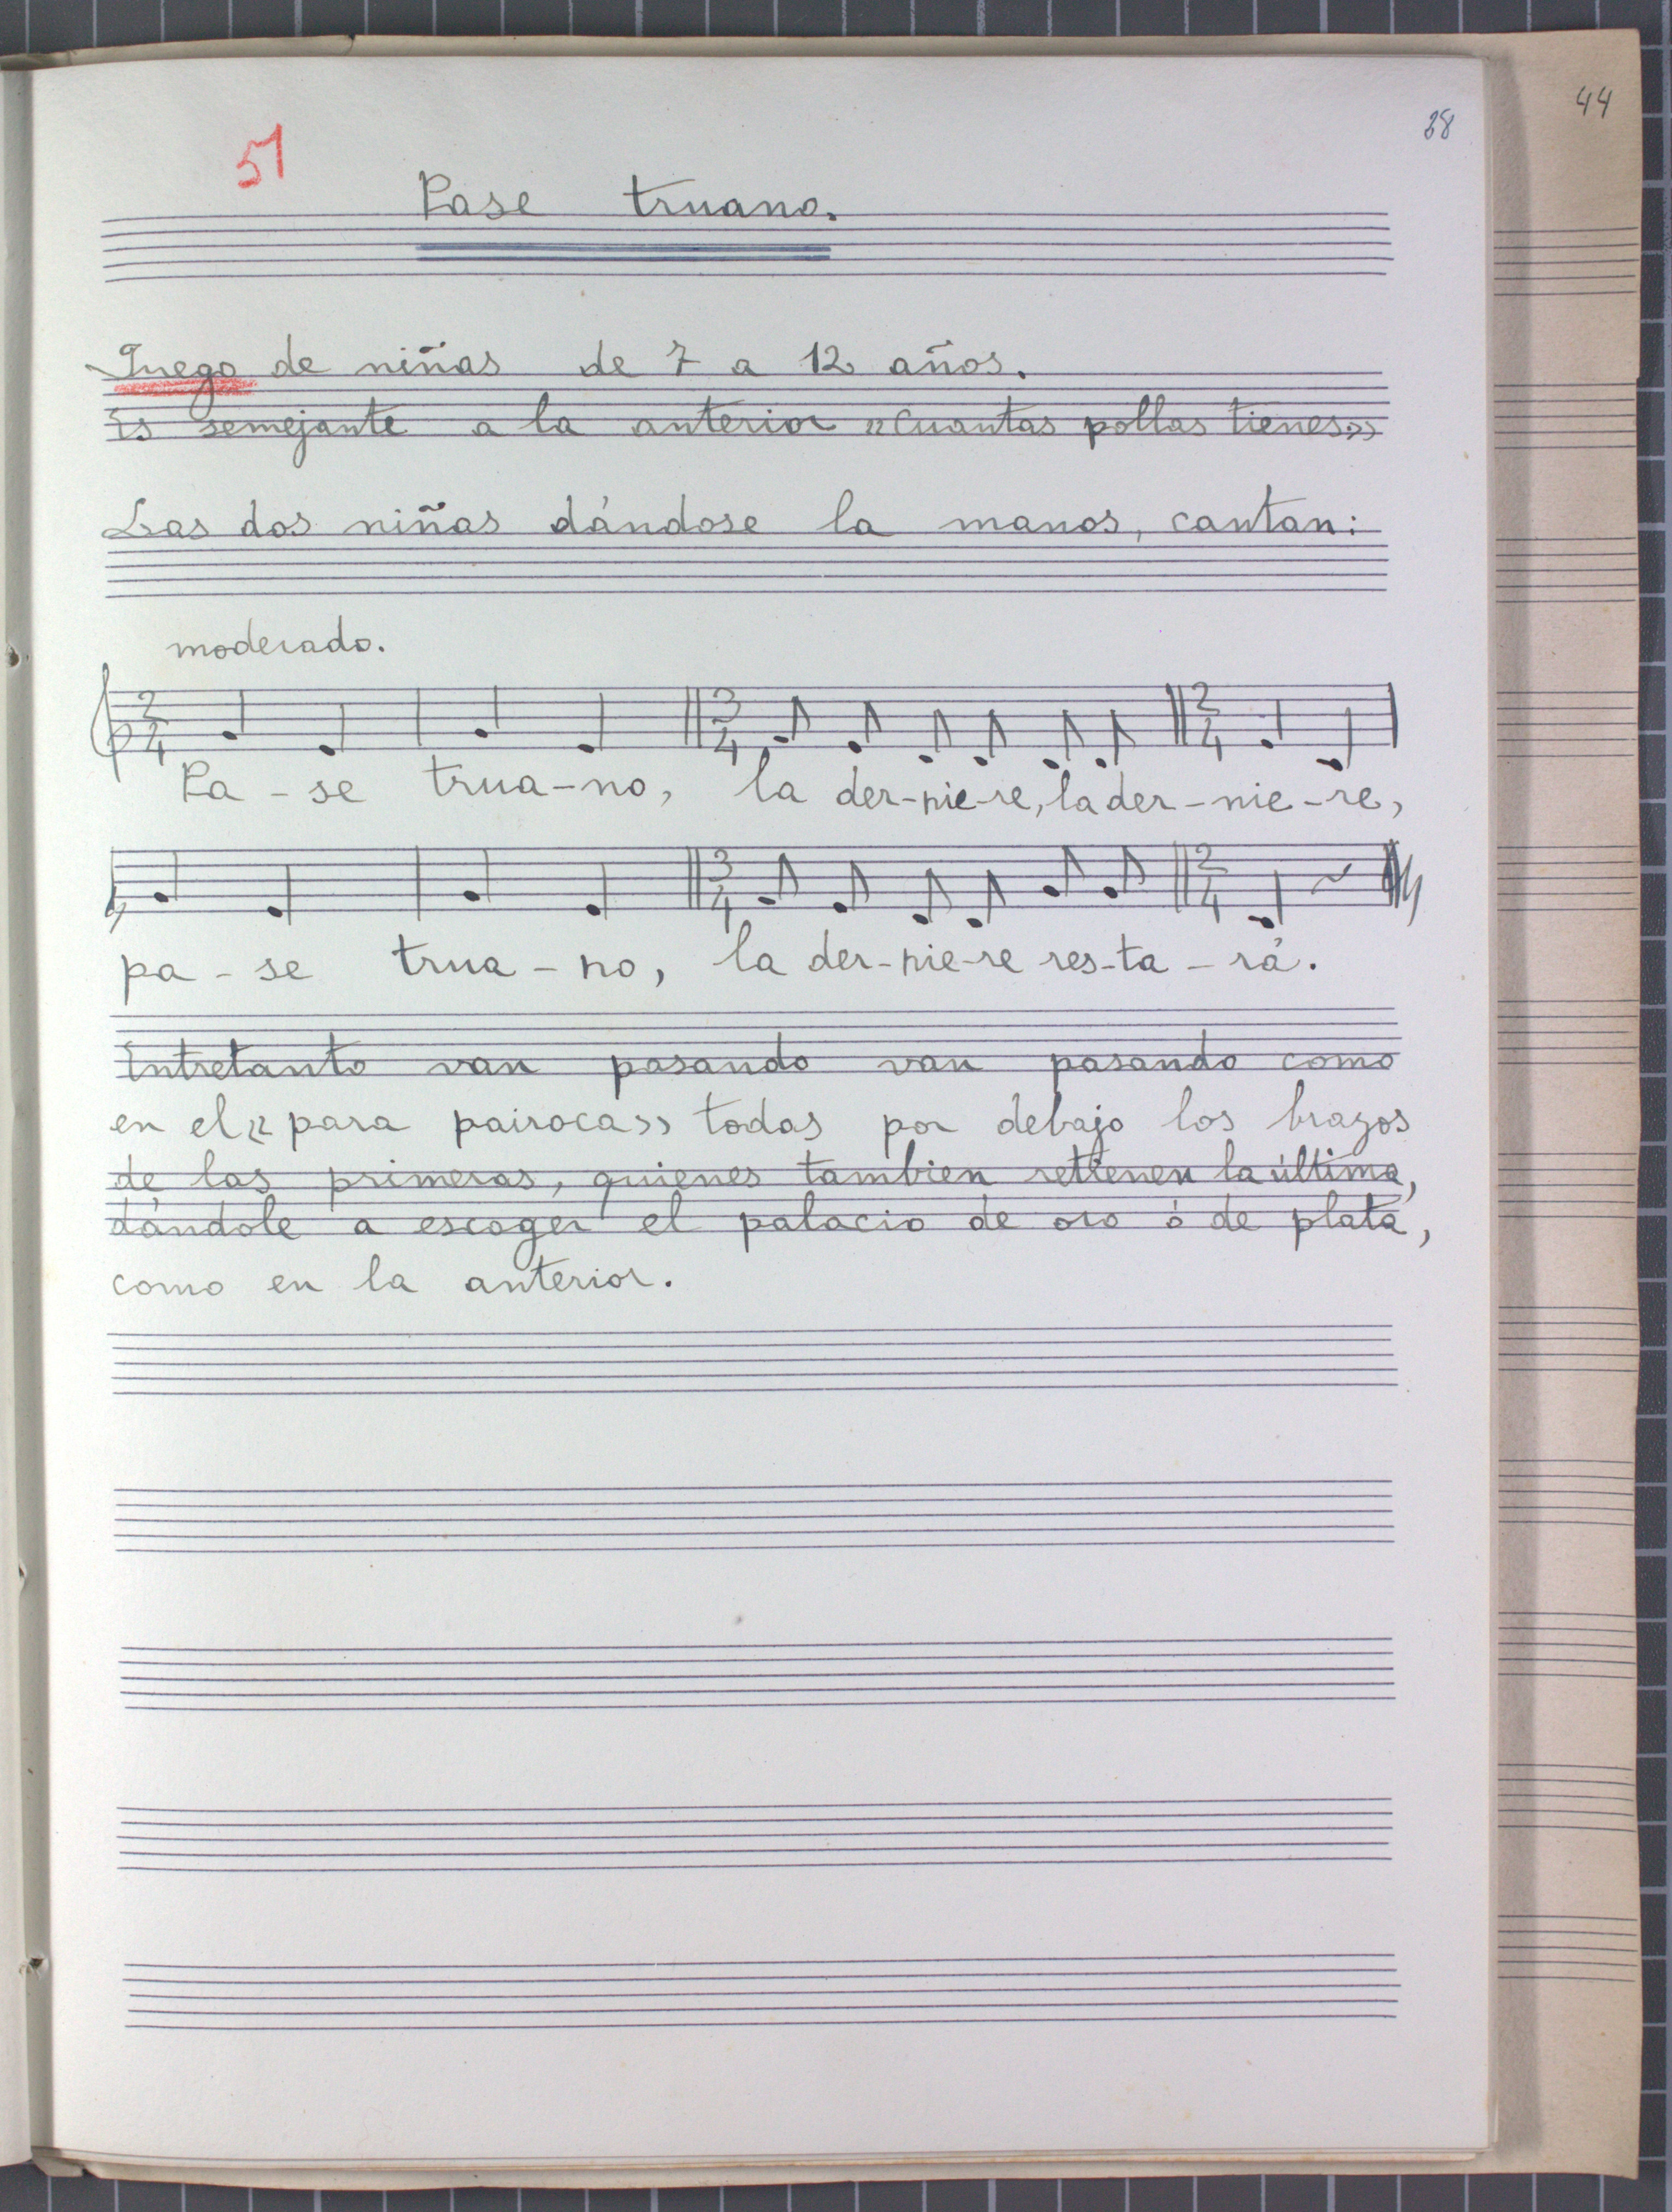 44
38
51
Pase truano.
Juego de niñas de 7 a 12 años.
Es semejante a la anterior «Cuantas pollas tienes»
Las dos niñas dándose la manos, cantan:
moderado.
2/4 3/4 2/4
Pa-se trua-no, la der-nie-re, la der-nie-re,
3/4 2/4
pa-se trua-no, la der-nie-re res-ta-rá.
Entretanto van pasando van pasando como
en el «para pairoca» todas por debajo los brazos
de las primeras, quienes tambien retienen la última,
dándole a escoger el palacio de oro ó de plata,
como en la anterior.